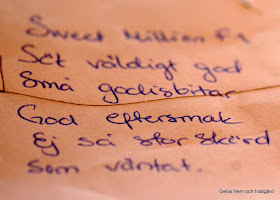 Sweet Million F1
Söt väldigt god
Små godisbitar
God eftersmak
Ej så stor skörd
som väntat.
Getas hem och trädgård